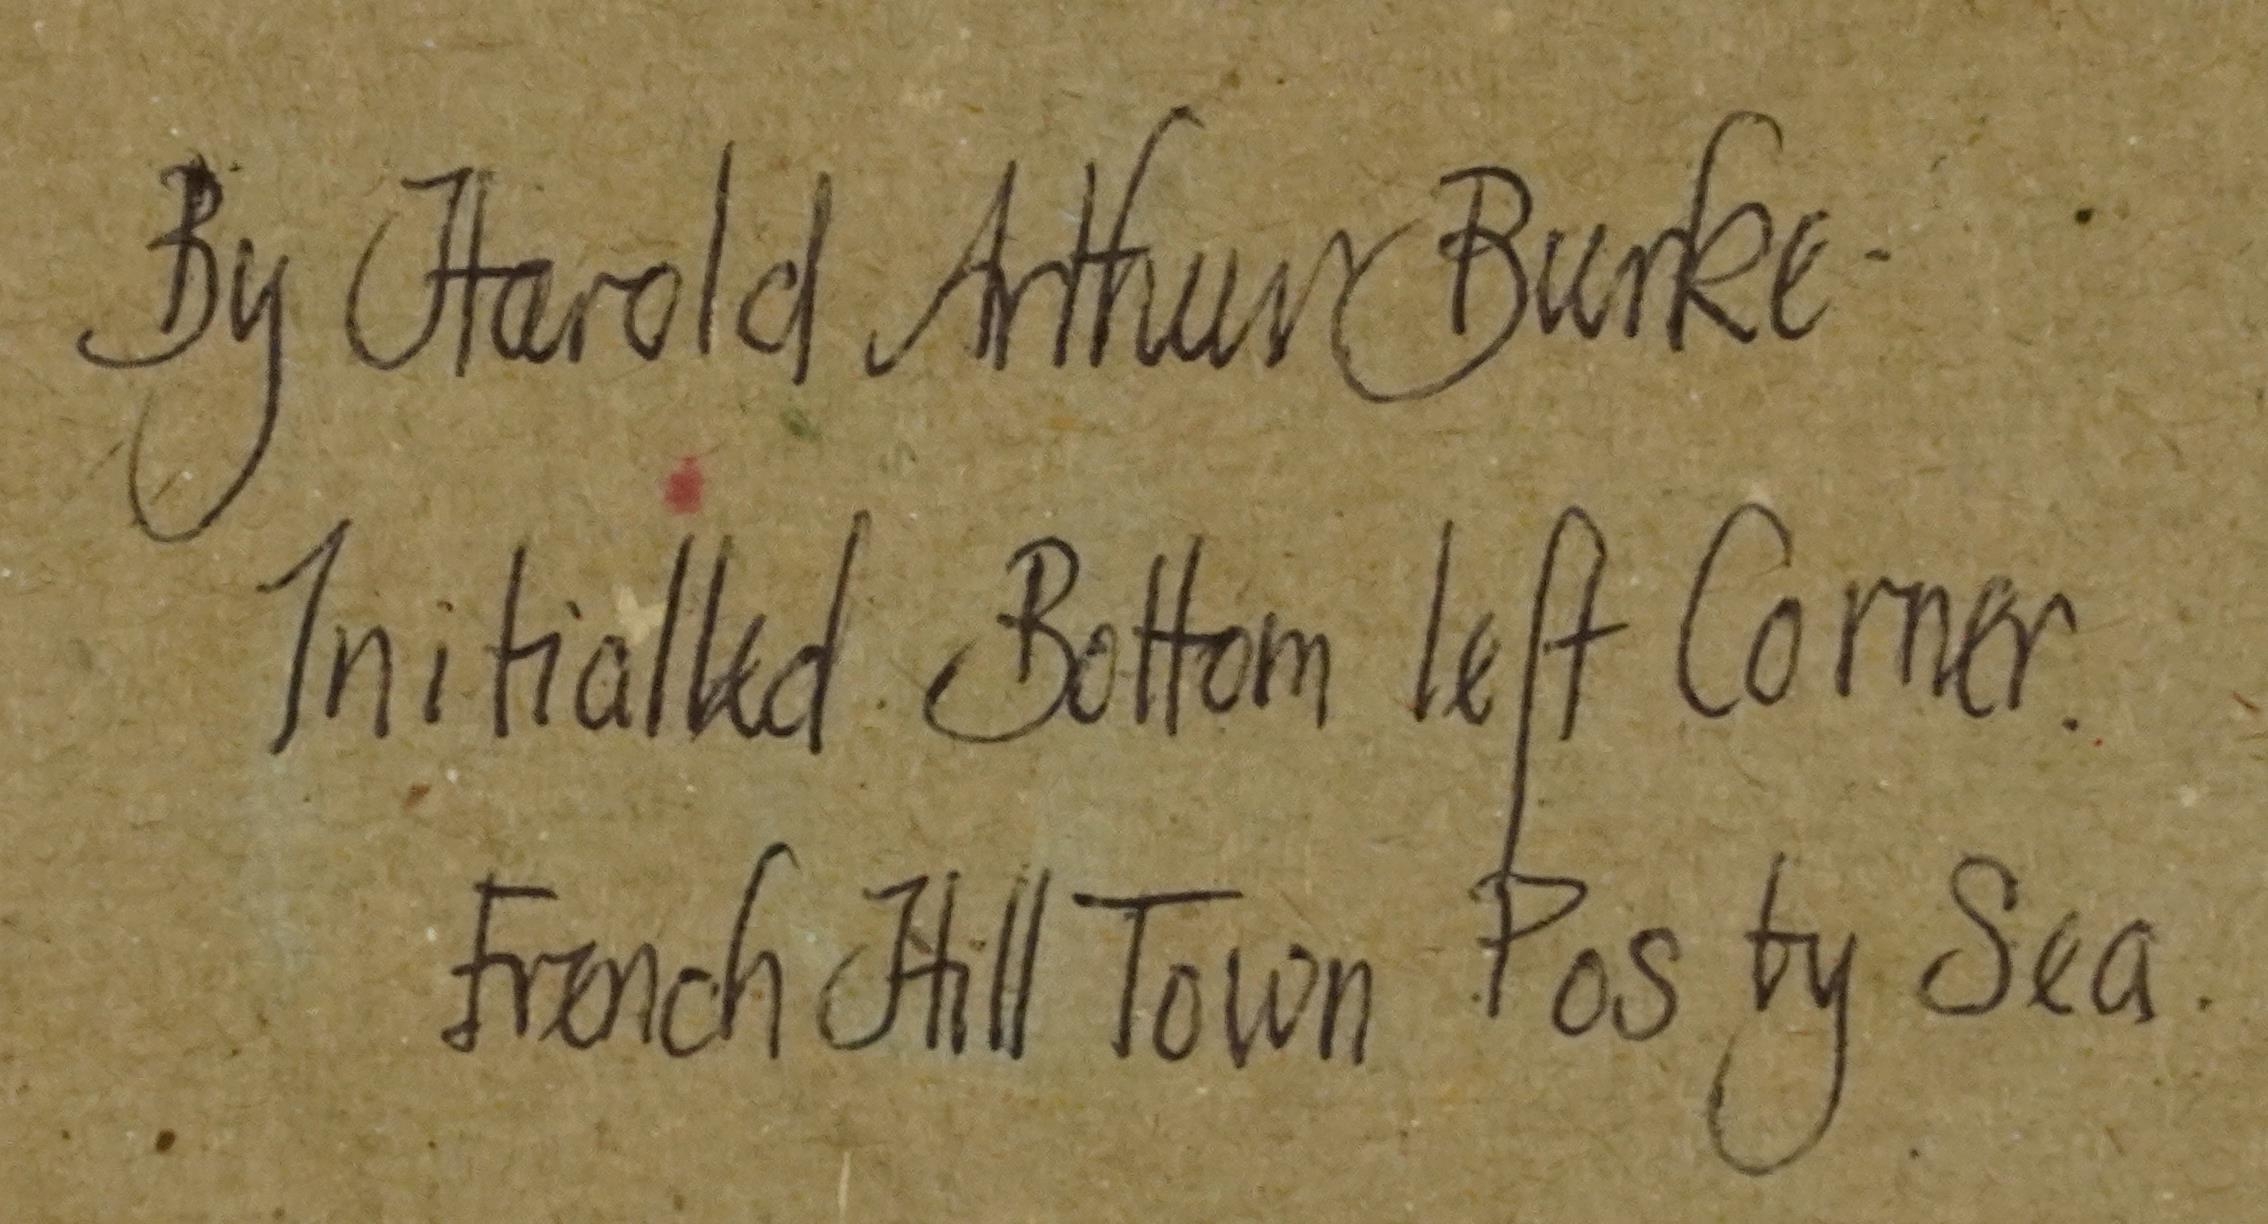 By Harold Arthur Burke-
Initialled Bottom left Corner.
French Hill Town Pos by Sea.